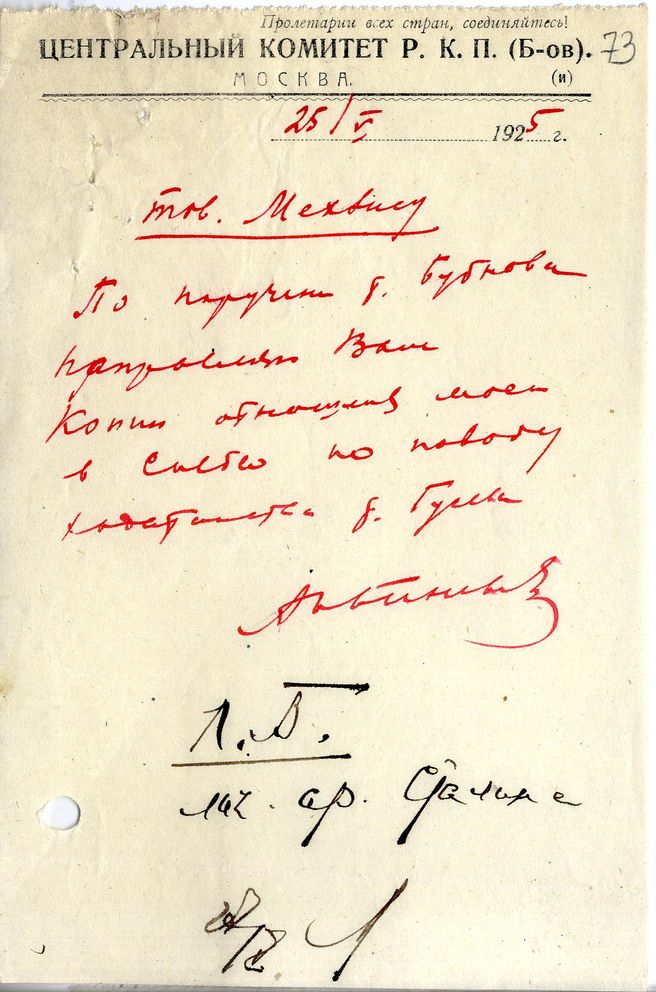 Пролетарии всех стран, соединяйтесь!
ЦЕНТРАЛЬНЫЙ КОМИТЕТ Р. К. П. (Б-ов).
73
МОСКВА.
(и)
25/V 1925 г.
тов. Мехлису
По поручен т. Бубнова
направляю Вам
копию отношения моего
в по поводу
ходатайства т.
Л.Б.
лич. ар. Сталина